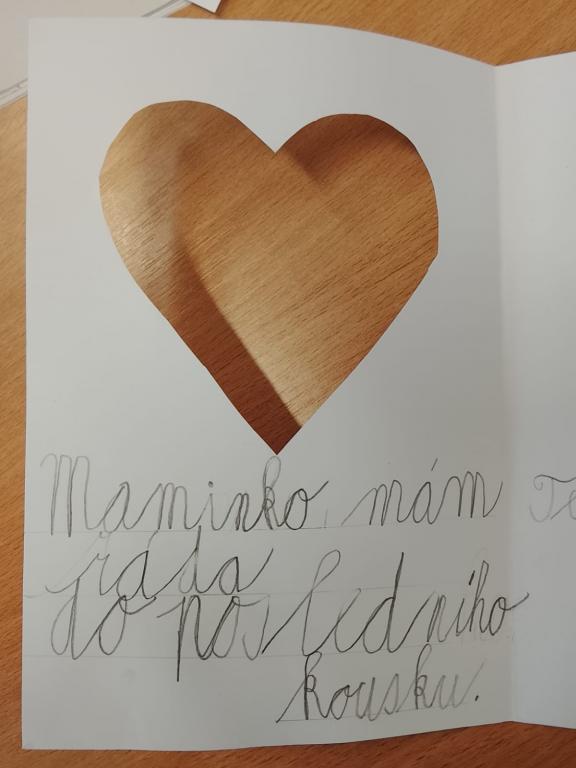 Maminko mám Tě
ráda
do posledního
kousku.